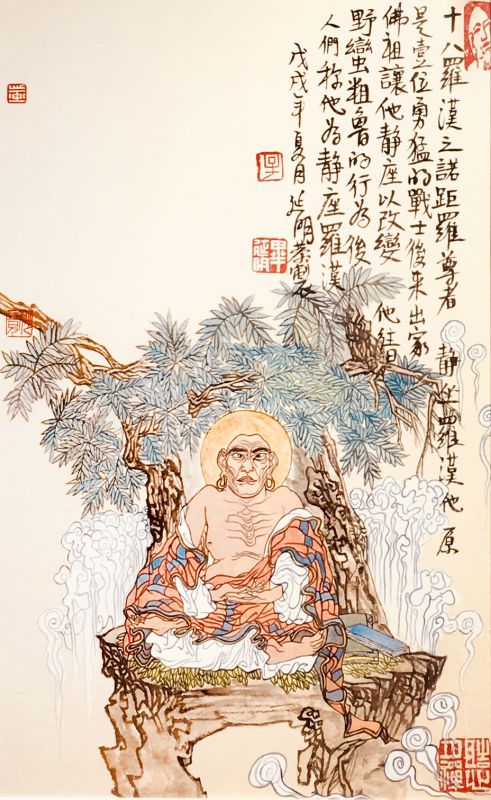 十八羅漢之諾距羅尊者 静坐羅漢他原
是壹位勇猛的戰士後来出家
佛祖讓他静座以改變 他往日
野蠻粗魯的行为後
人們称他为静座羅漢
戊戌年夏月延明恭劃